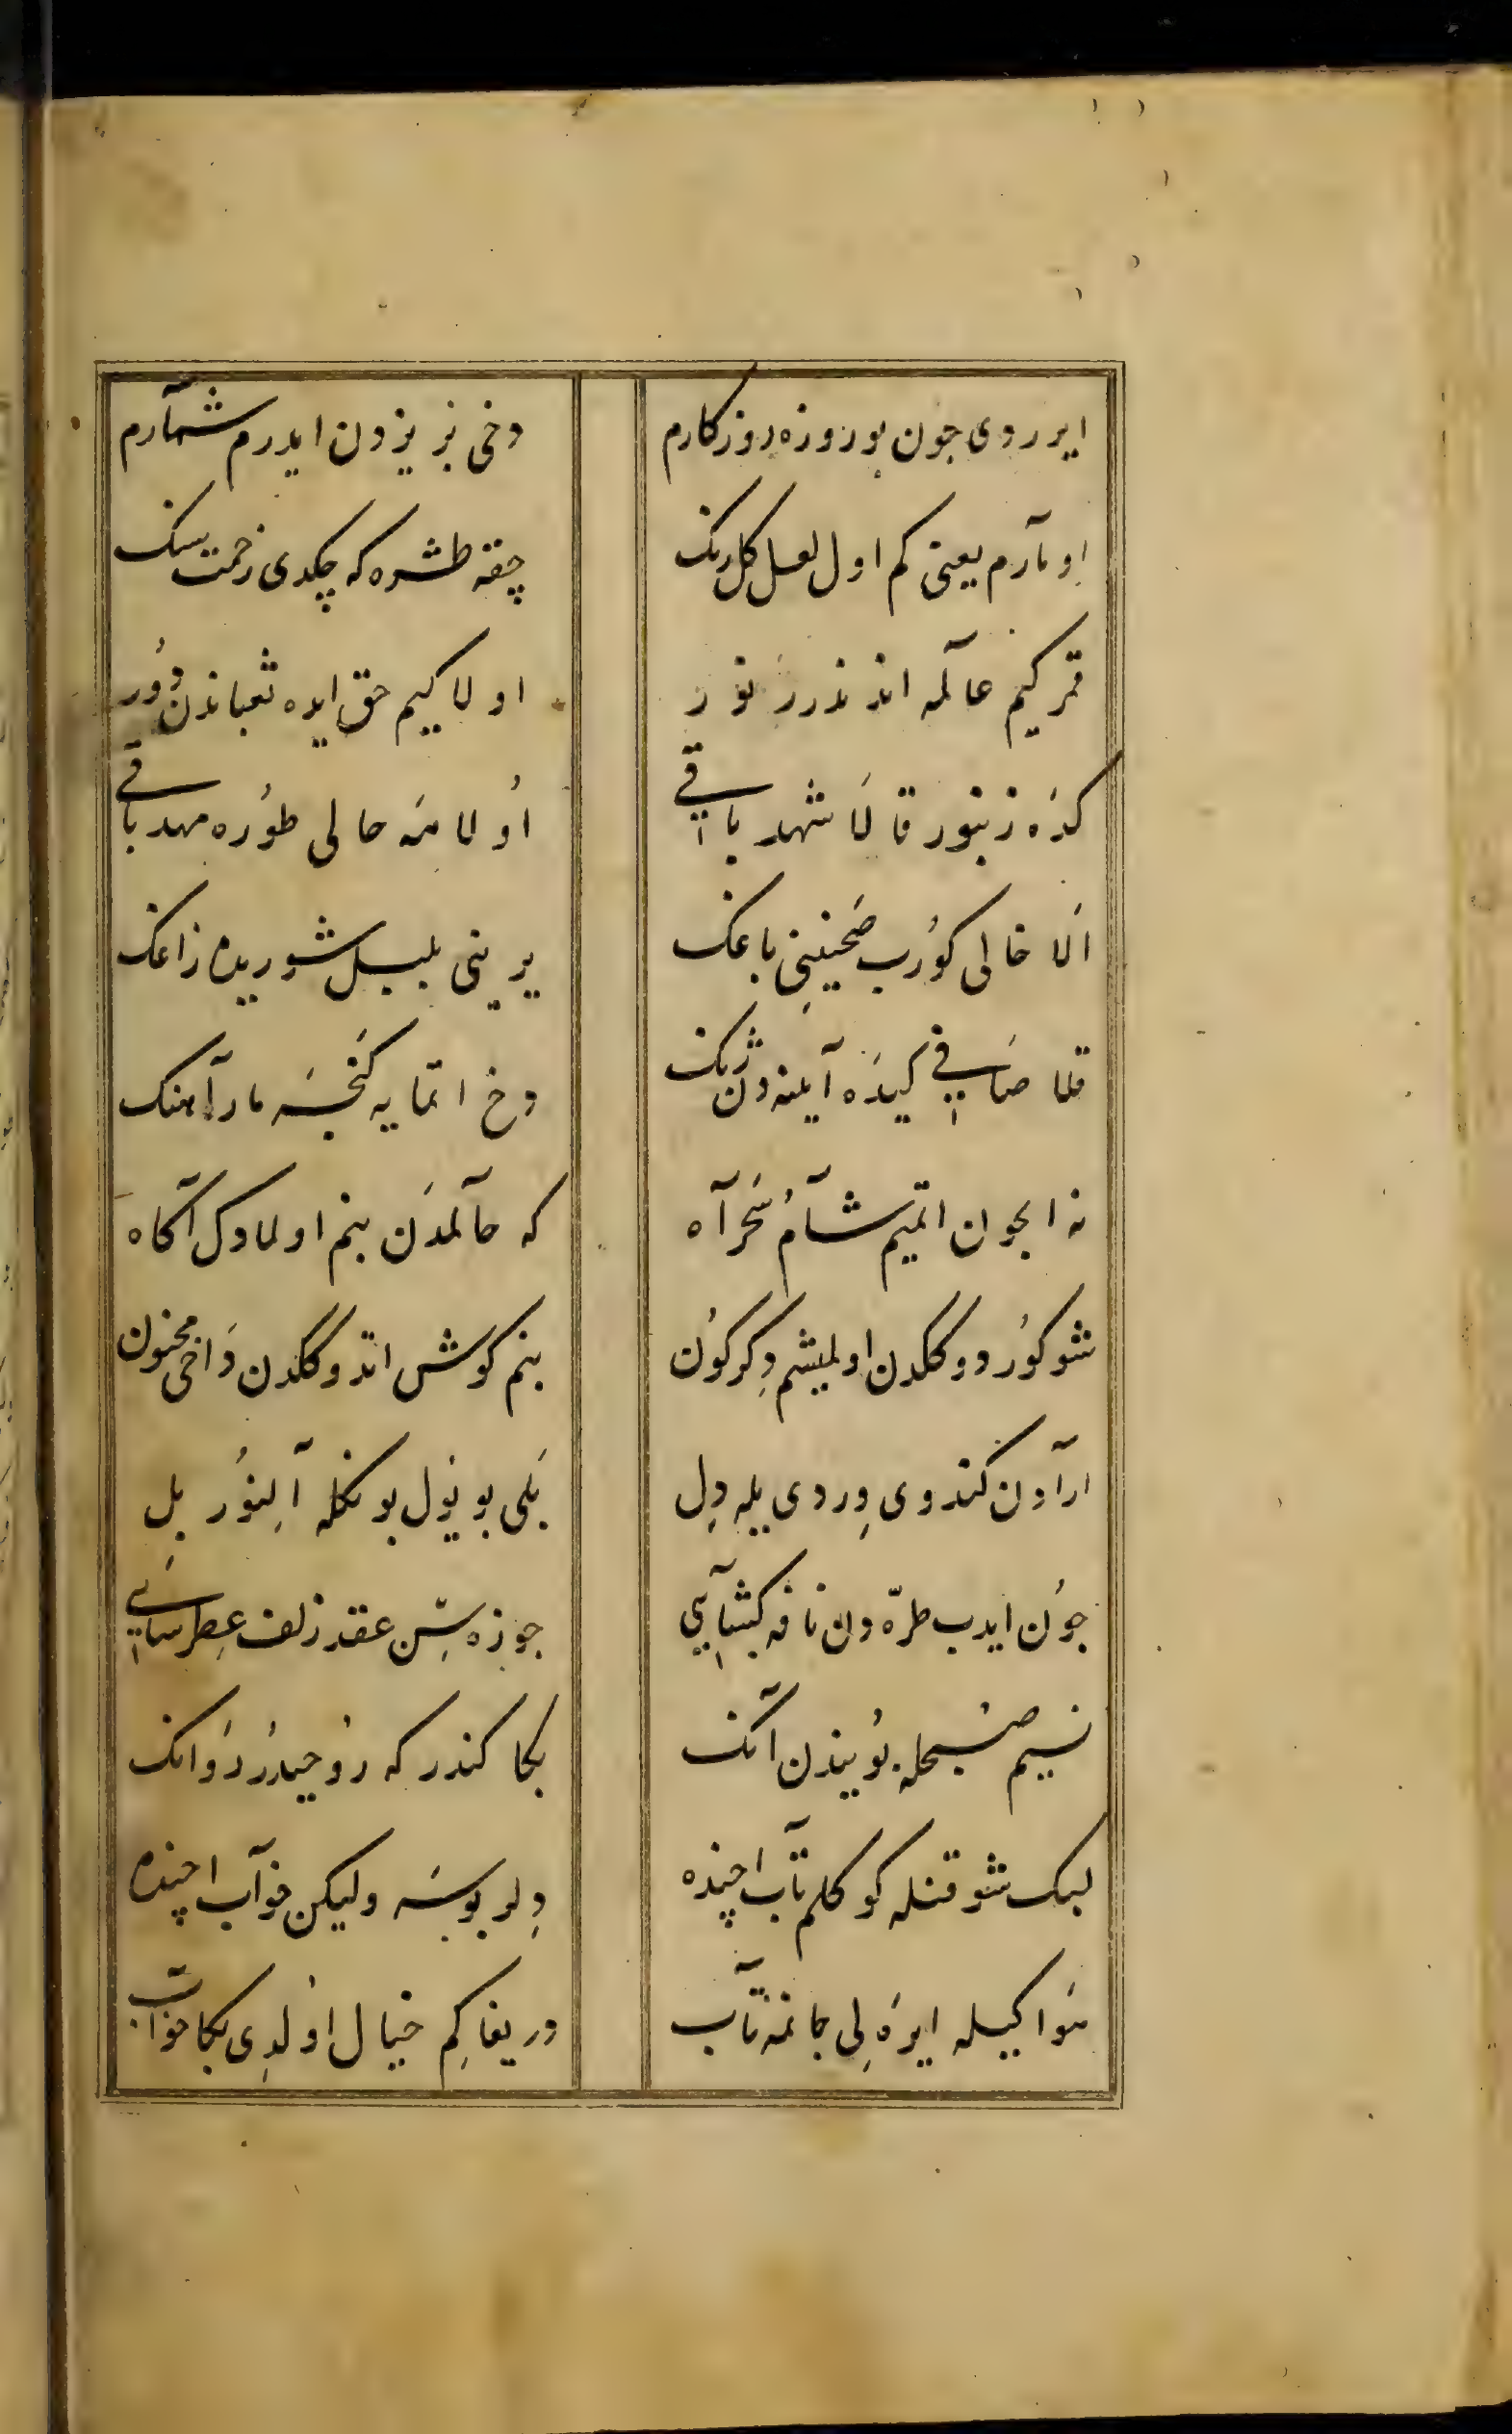 ایردی چون بو روزه روزکارم دخی بز یزدن ایدرم شمارم
اومارم یعنی کم اول لعل کل رنک چقه طشره که چکدی زحمت سنک
قمر کیم عالمه اندندرر نور اولا کیم حق ایده ثعباندن دور
کده زنبور قالا شهد باقی اولامه حالی طوره مهد باقی
الا خالی کورب صحنینی باغک یرینی بلبل شوریده زاغک
قلا صافی کیده آینه دن ژنک دخ اتمایه کنجسه مار آهنک
نه ایچون اتمیم شام سحر آه که حالمدن بنم اولمادک آکاه
شو کوردوککدن اولمیشم دکرکون بنم کوش اتدوککدن داخی مجنون
ارادن کندوی وردی یله دل بلی بو یول بونکله آلنور بل
چون ایدب طره دن نافه کشایی چوزه سن عقد زلف عطرسایی
نسیم صبحله بویندن آنک بکا کندر که روحیدر روانک
لبک شوقنله کوکلم تاب ایچنده دلر بوسه ولیکن خواب ایچنده
سوا کیسله ایره لی جانمه تاب دریغا کم خیال اولدی بکا خواب